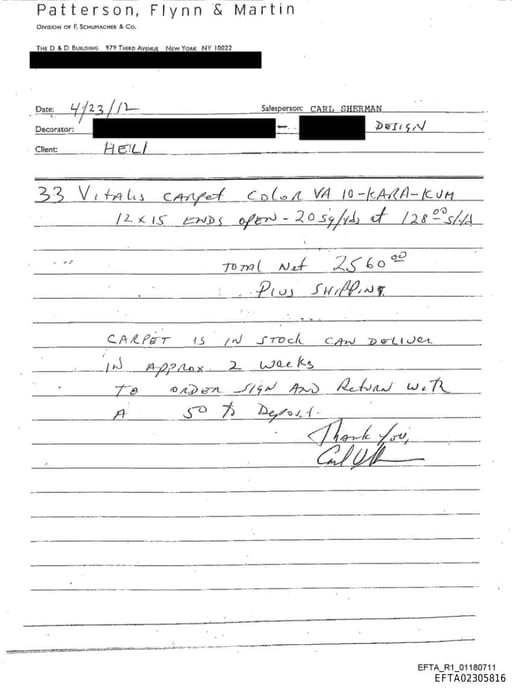 Patterson, Flynn & Martin
DIVISION OF F. SCHUMACHER & CO.
THE D & D BUILDING 979 THIRD AVENUE NEW YORK NY 10022
Date: 4/23/12 Salesperson: CARL SHERMAN
Decorator: - DESIGN
Client: HELI
33 Vitalis CARPET COLOR VA 10-KARA-KUM
12 x 15 ENDS OPEN - 20 sq/yds at 128.00 s/yd
TOTAL Net 2560.00
Plus SHIPPING
CARPET IS IN STOCK CAN DELIVER
IN Approx. 2 weeks
TO ORDER SIGN AND Return with
A 50 % Deposit.
Thank You,
Carl
EFTA_R1_01180711
EFTA02305816